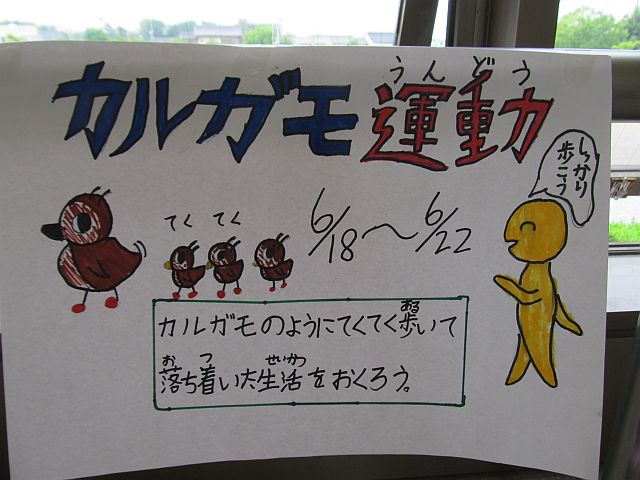 うんどう
カルガモ運動
しっかり
歩こう
てくてく
6/18〜6/22
ある
カルガモのようにてくてく歩いて
お つ せいかつ
落ち着いた生活をおくろう。